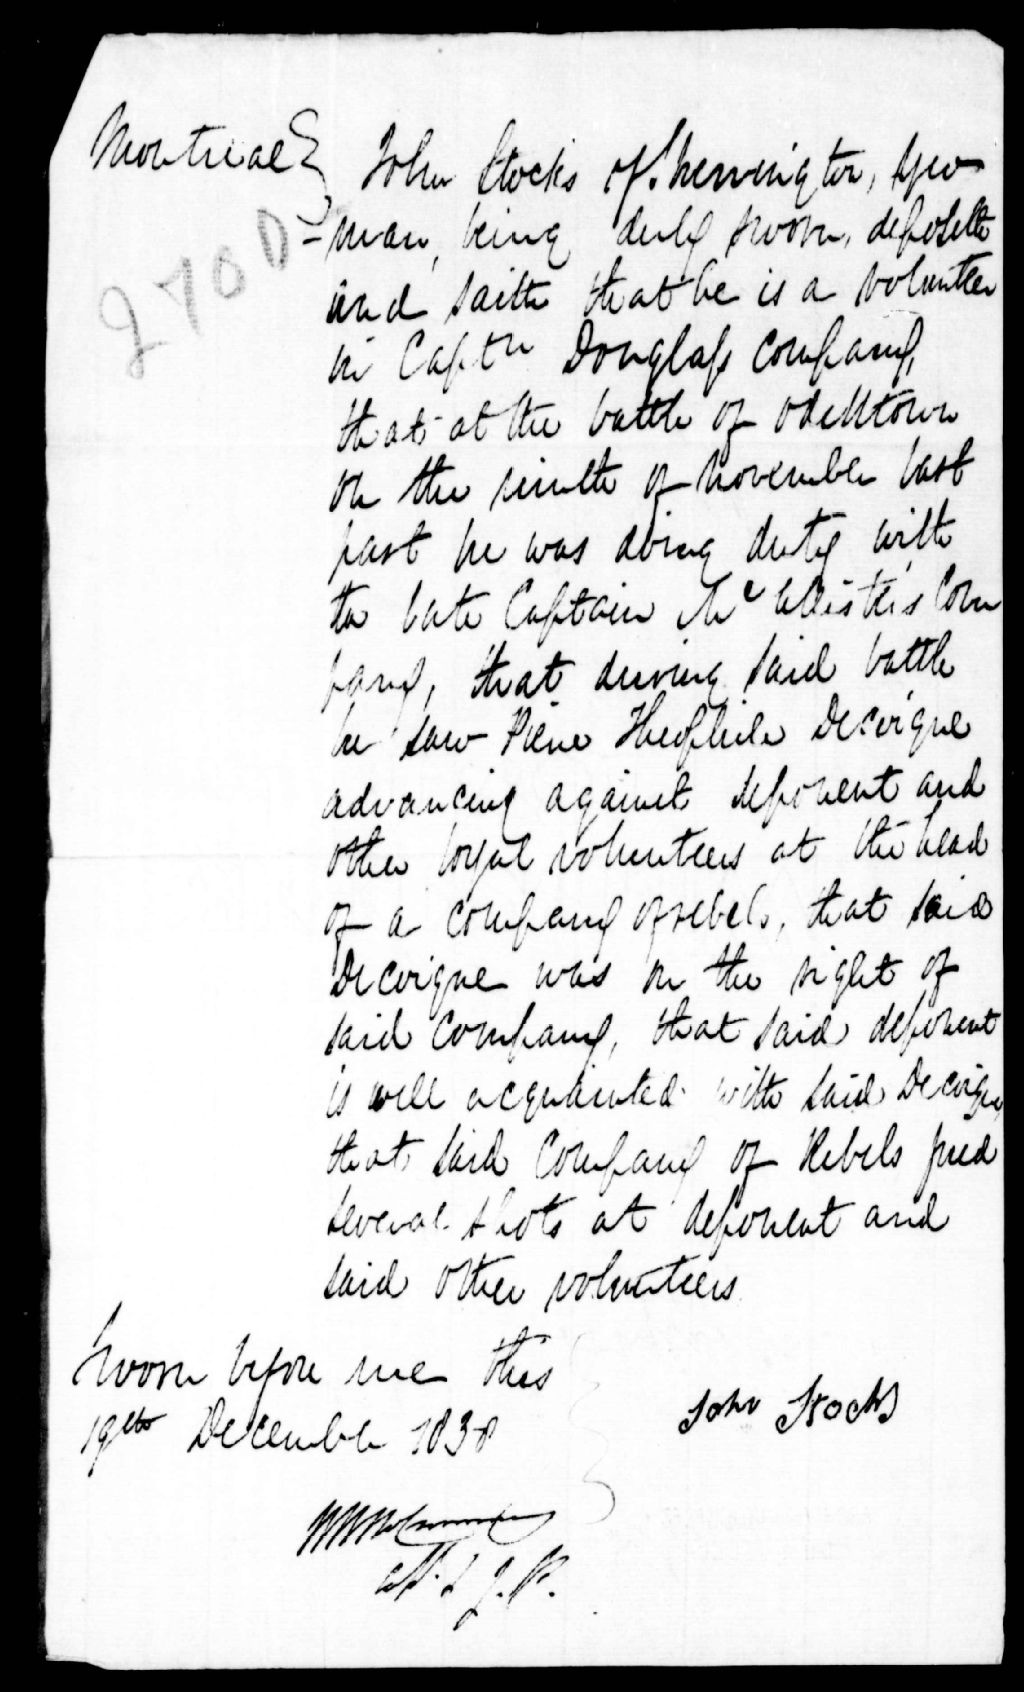 Montreal } John Stocks of Sherrington, Yeo-
2700
man, being duly sworn, deposeth
and saith that he is a volunteer
in Captn Douglass company,
that at the battle of Odelltown
on the ninth of November last
past he was doing duty with
the late Captain Mc Allister's Com
pany, that during said battle
he saw Pierre Theophile Decoigne
advancing against deponent and
other loyal volunteers at the head
of a company of rebels, that said
Decoigne was on the right of
said company, that said deponent
is well acquainted with said Decoigne
that said Company of Rebels fired
several shots at deponent and
said other volunteers
Sworn before me this
19th December 1838
John Stocks
J. P.